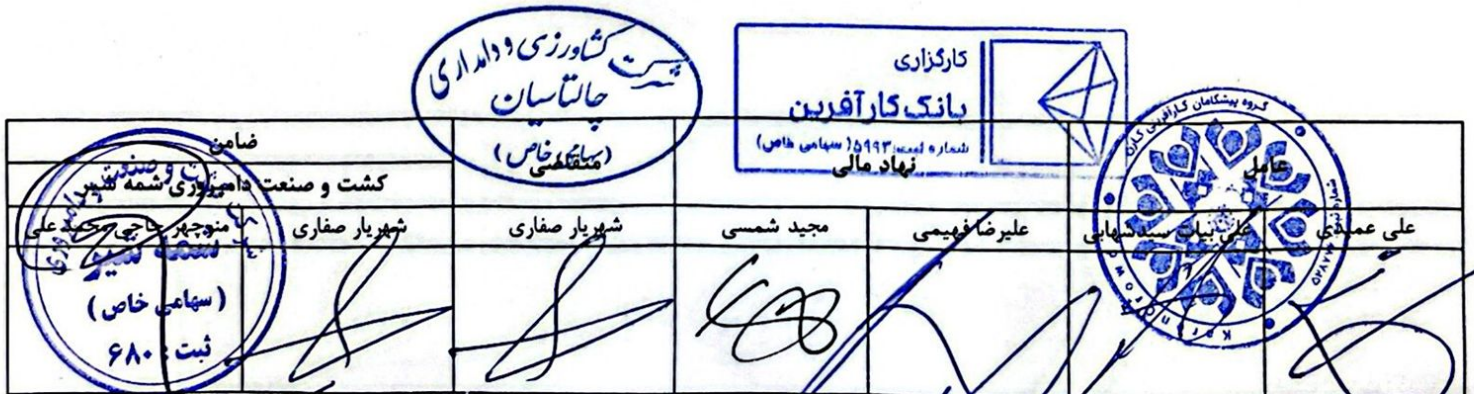 شرکت کشاورزی و دامداری
جالتاسیان
(سهامی خاص)
کارگزاری
بانک کارآفرین
شماره ثبت: ۱۵۹۹۳ (سهامی خاص)
گروه پیشگامان کارآفرینی کارن
شماره ثبت
Karen Crowd
عامل
نهاد مالی
متقاضی
ضامن
کشت و صنعت دامپروری شمه شیر
علی عمیدی
علی بیات سیدشهابی
علیرضا فهیمی
مجید شمسی
شهریار صفاری
شهریار صفاری
منوچهر حاجی محمد علی
شمه شیر
(سهامی خاص)
ثبت: ۶۸۰